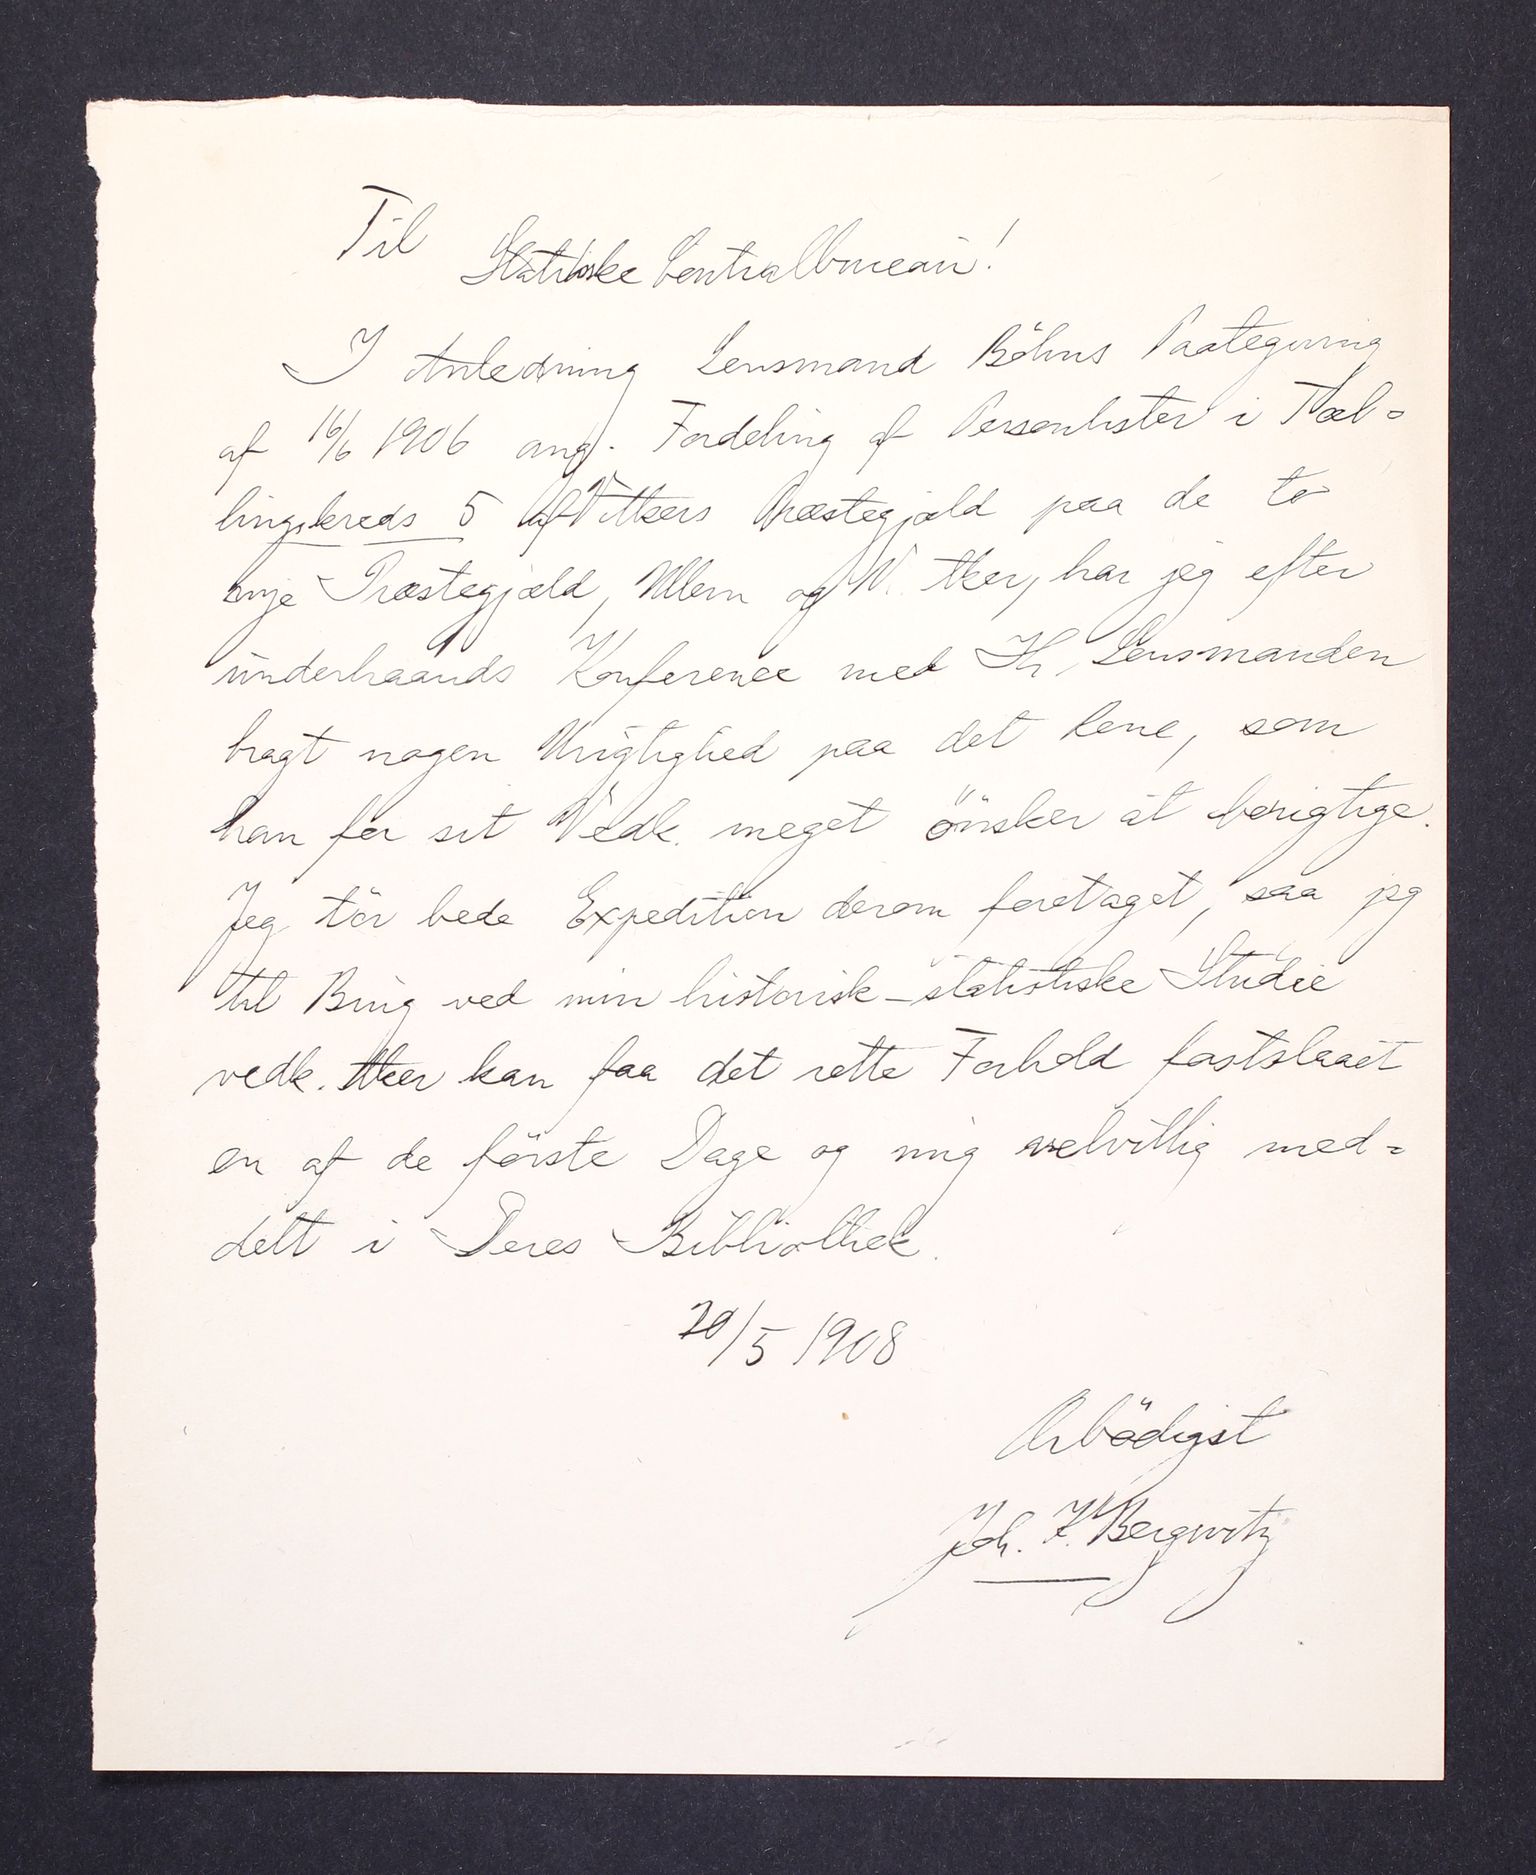 Til
Statistiske Centralbureau!
I Anledning Lensmand Böhns Paategning
af 16/6 1906 ang. Fordeling af Personlister i Tæl-
lingskreds 5 af V Akers Præstegjæld paa de to
nye Præstegjæld, Ullern og V. Aker, har jeg efter
underhaands Konference med Hr. Lensmanden
bragt nogen Urigtighed paa det Rene, som
han for sit Vedk. meget önsker at berigtige.
Jeg tör bede Expedition derom foretaget, saa jeg
til Brug ved min historisk-statistiske Studie
vedk. Aker kan faa det rette Forhold fastslaaet
en af de förste Dage og mig velvillig med-
delt i Deres Bibliothek.
20/5 1908
Ärbödigst
Joh. K. Bergwitz